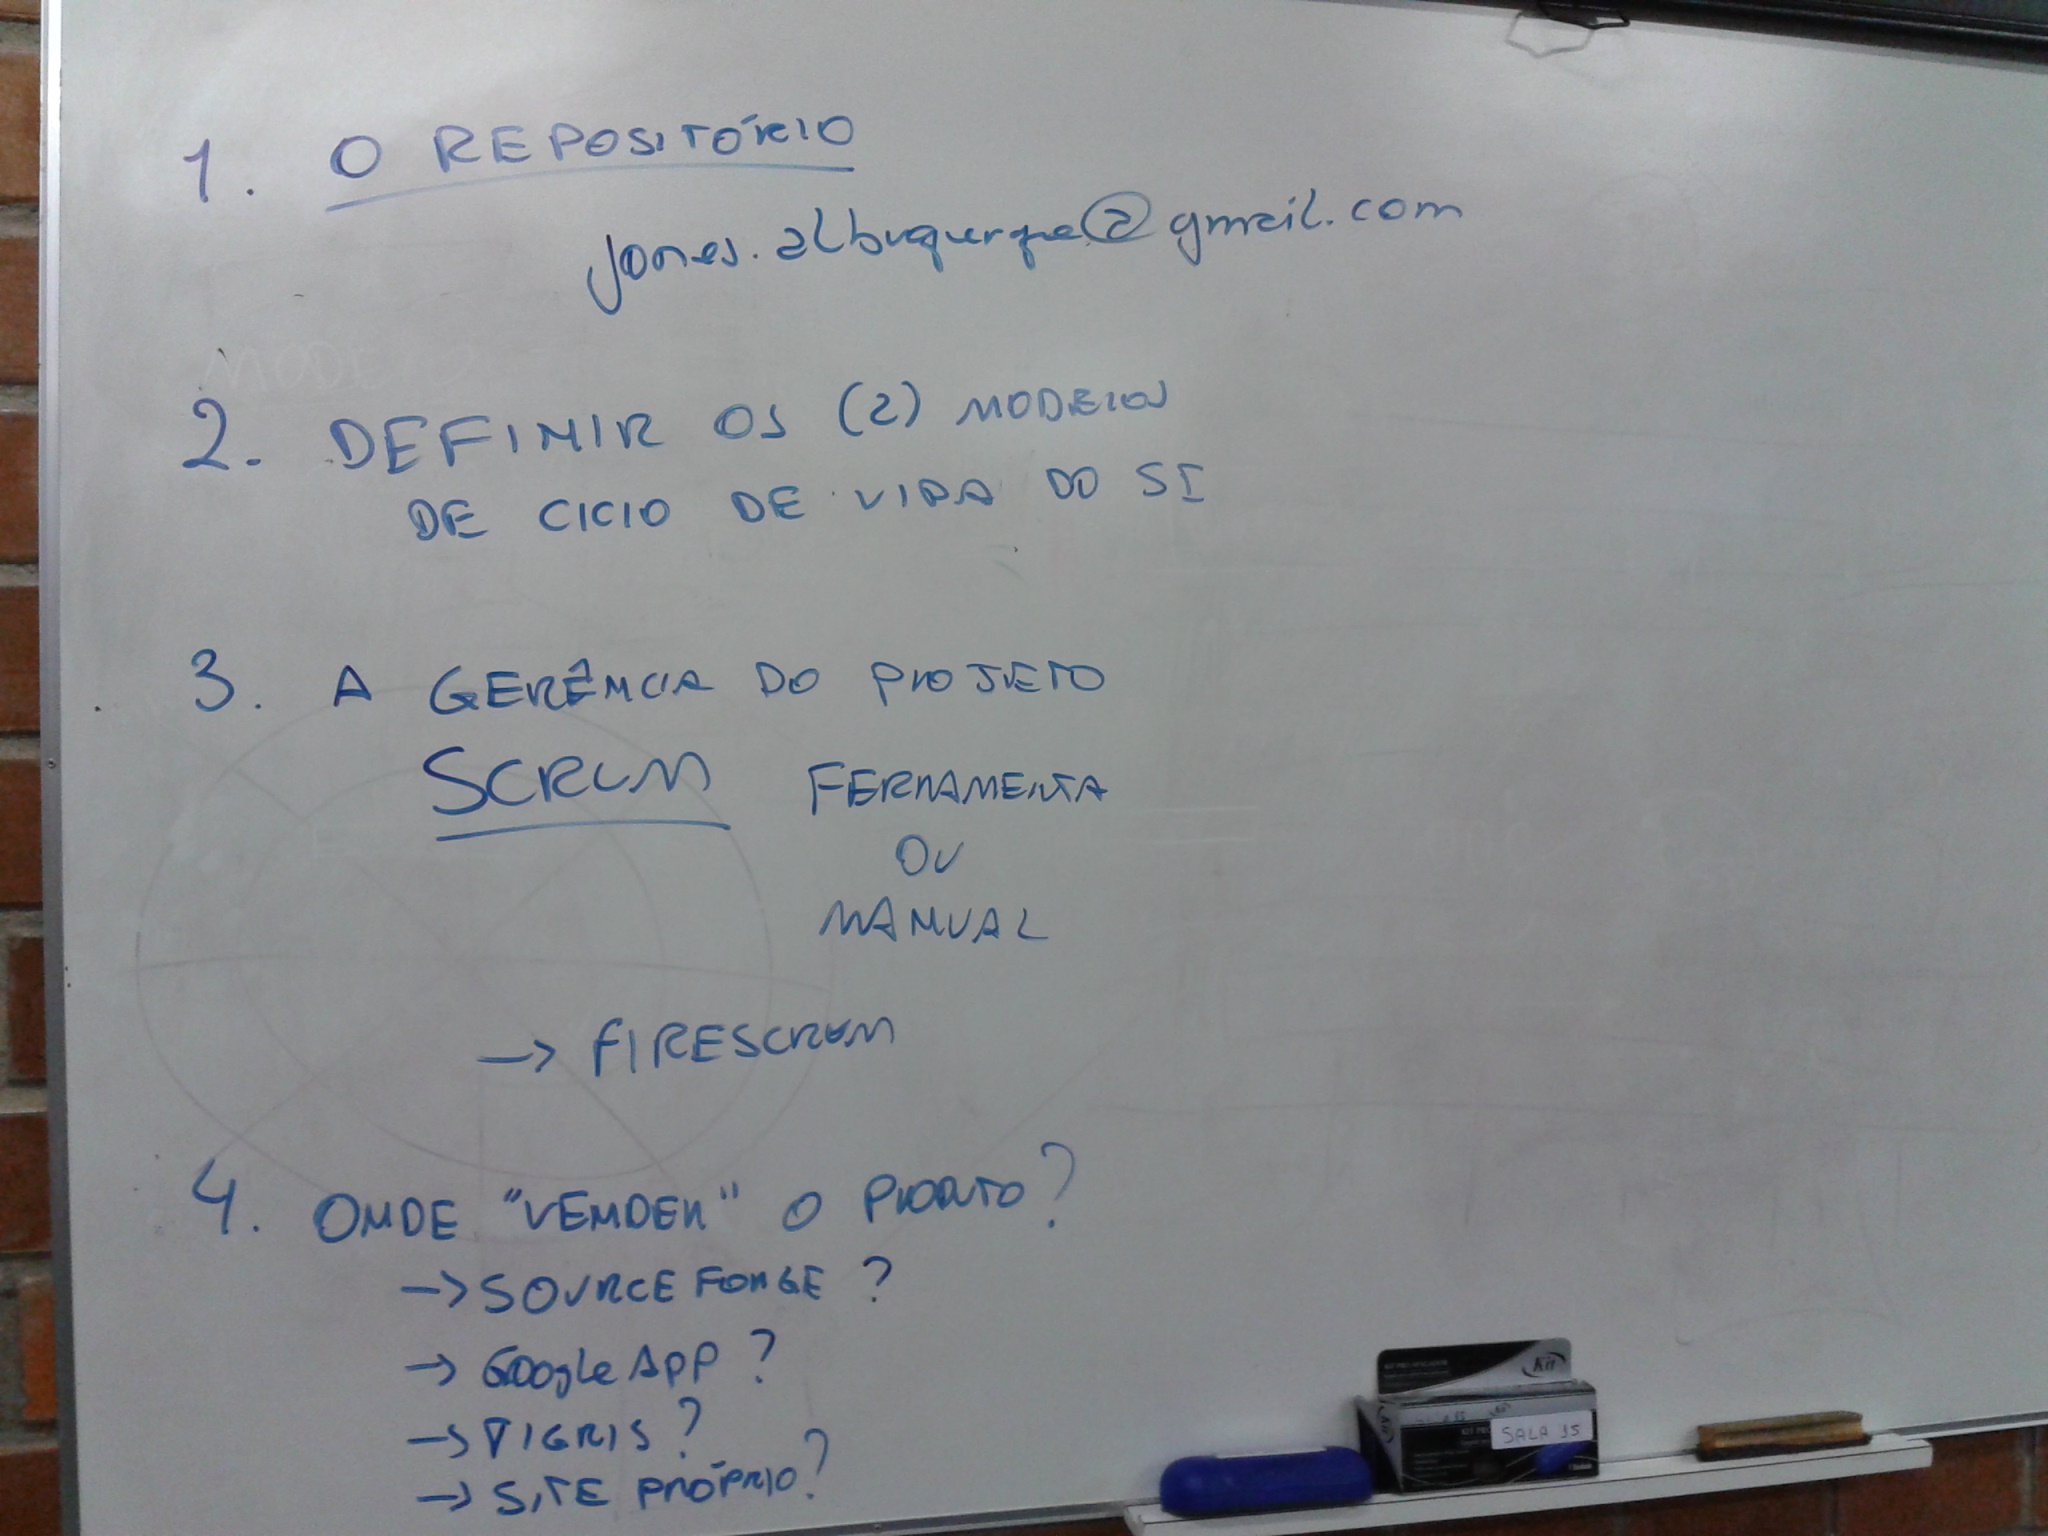 1. O REPOSITÓRIO
jones.albuquerque@gmail.com
2. DEFINIR OS (2) MODELOS
DE CICLO DE VIDA DO SI
3. A GERÊNCIA DO PROJETO
SCRUM FERRAMENTA
OU
MANUAL
-> FIRESCRUM
4. ONDE "VENDER" O PRONTO?
-> SOURCE FORGE ?
-> Google APP ?
-> TIGRIS ?
-> SITE PRÓPRIO?
Kit
SALA 15
MODELO